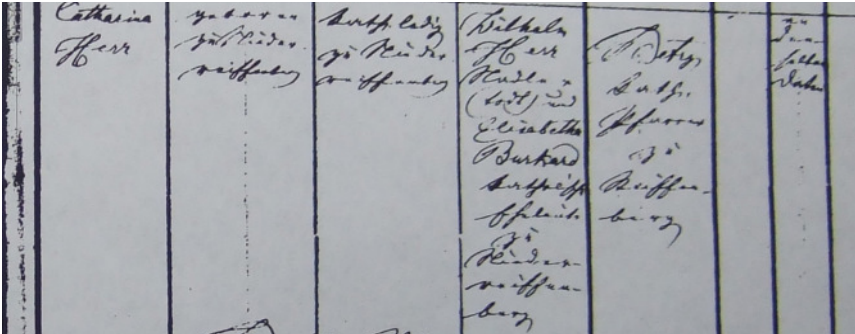 Catharina
Herr
geboren
zu Nieder
reiffenberg
kath. ledig
zu Nieder
reiffenberg
Wilhelm
Herr
Nadler
(todt) und
Elisabetha
Burkard
katholische
Eheleute
zu
Nieder-
reiffen-
berg
Petry
kath.
Pfarrer
zu
Reiffen-
berg
den-
selben
Datum